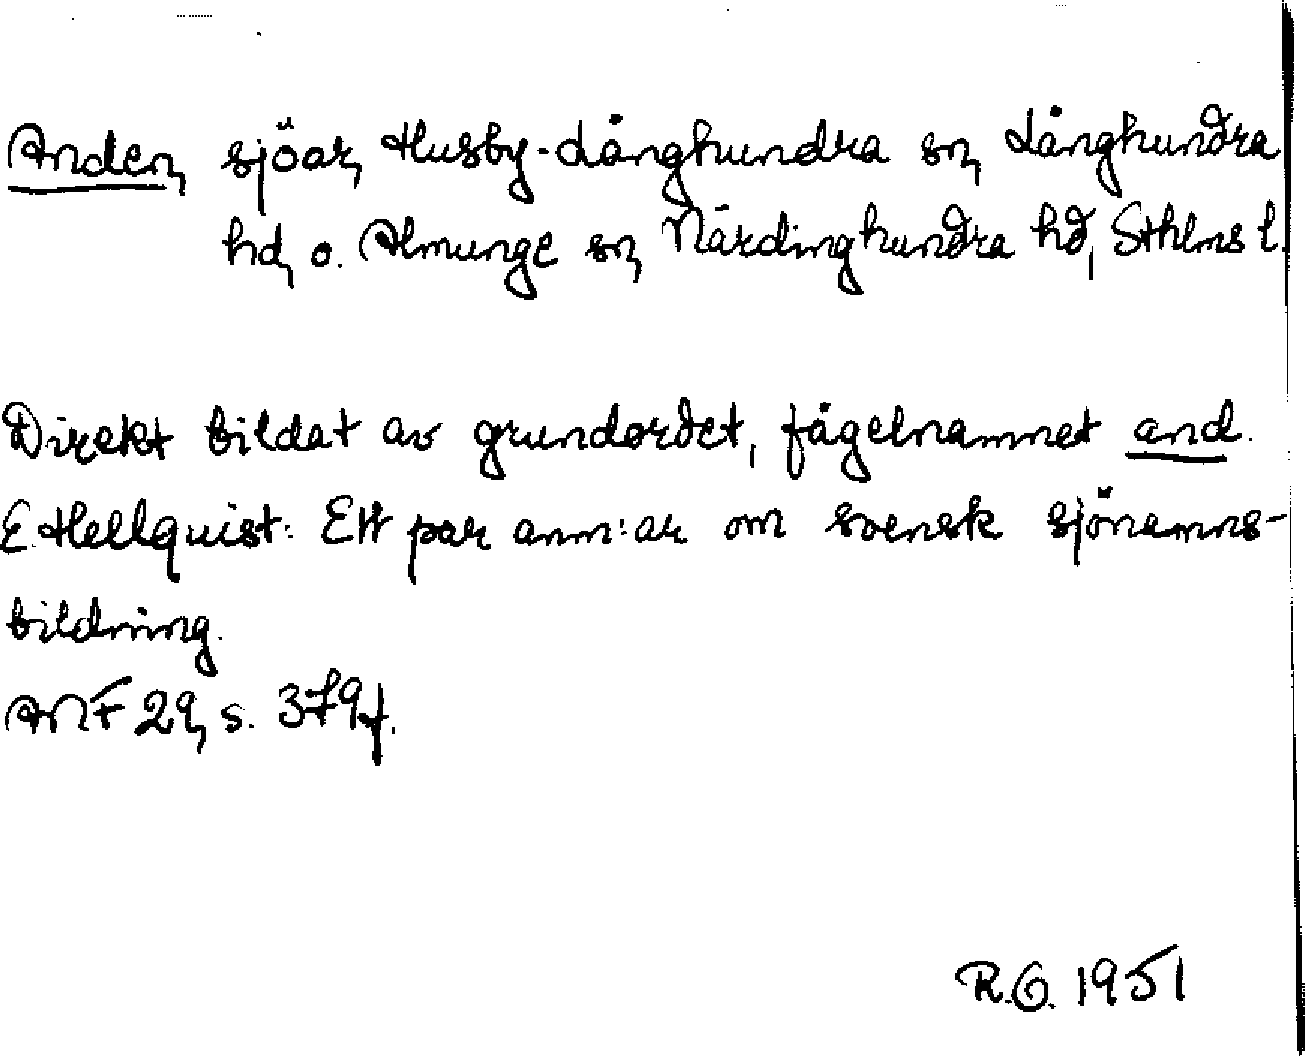 Anden, sjöar, Husby-Långhundra sn, Långhundra
hd, o. Almunge sn, Närdinghundra hd, Sthlms l.
Direkt bildat av grundordet, fågelnamnet and.
E. Hellquist: Ett par anm:ar om svensk sjönamns-
bildning.
ANF 29, s. 379 f.
R.O. 1951